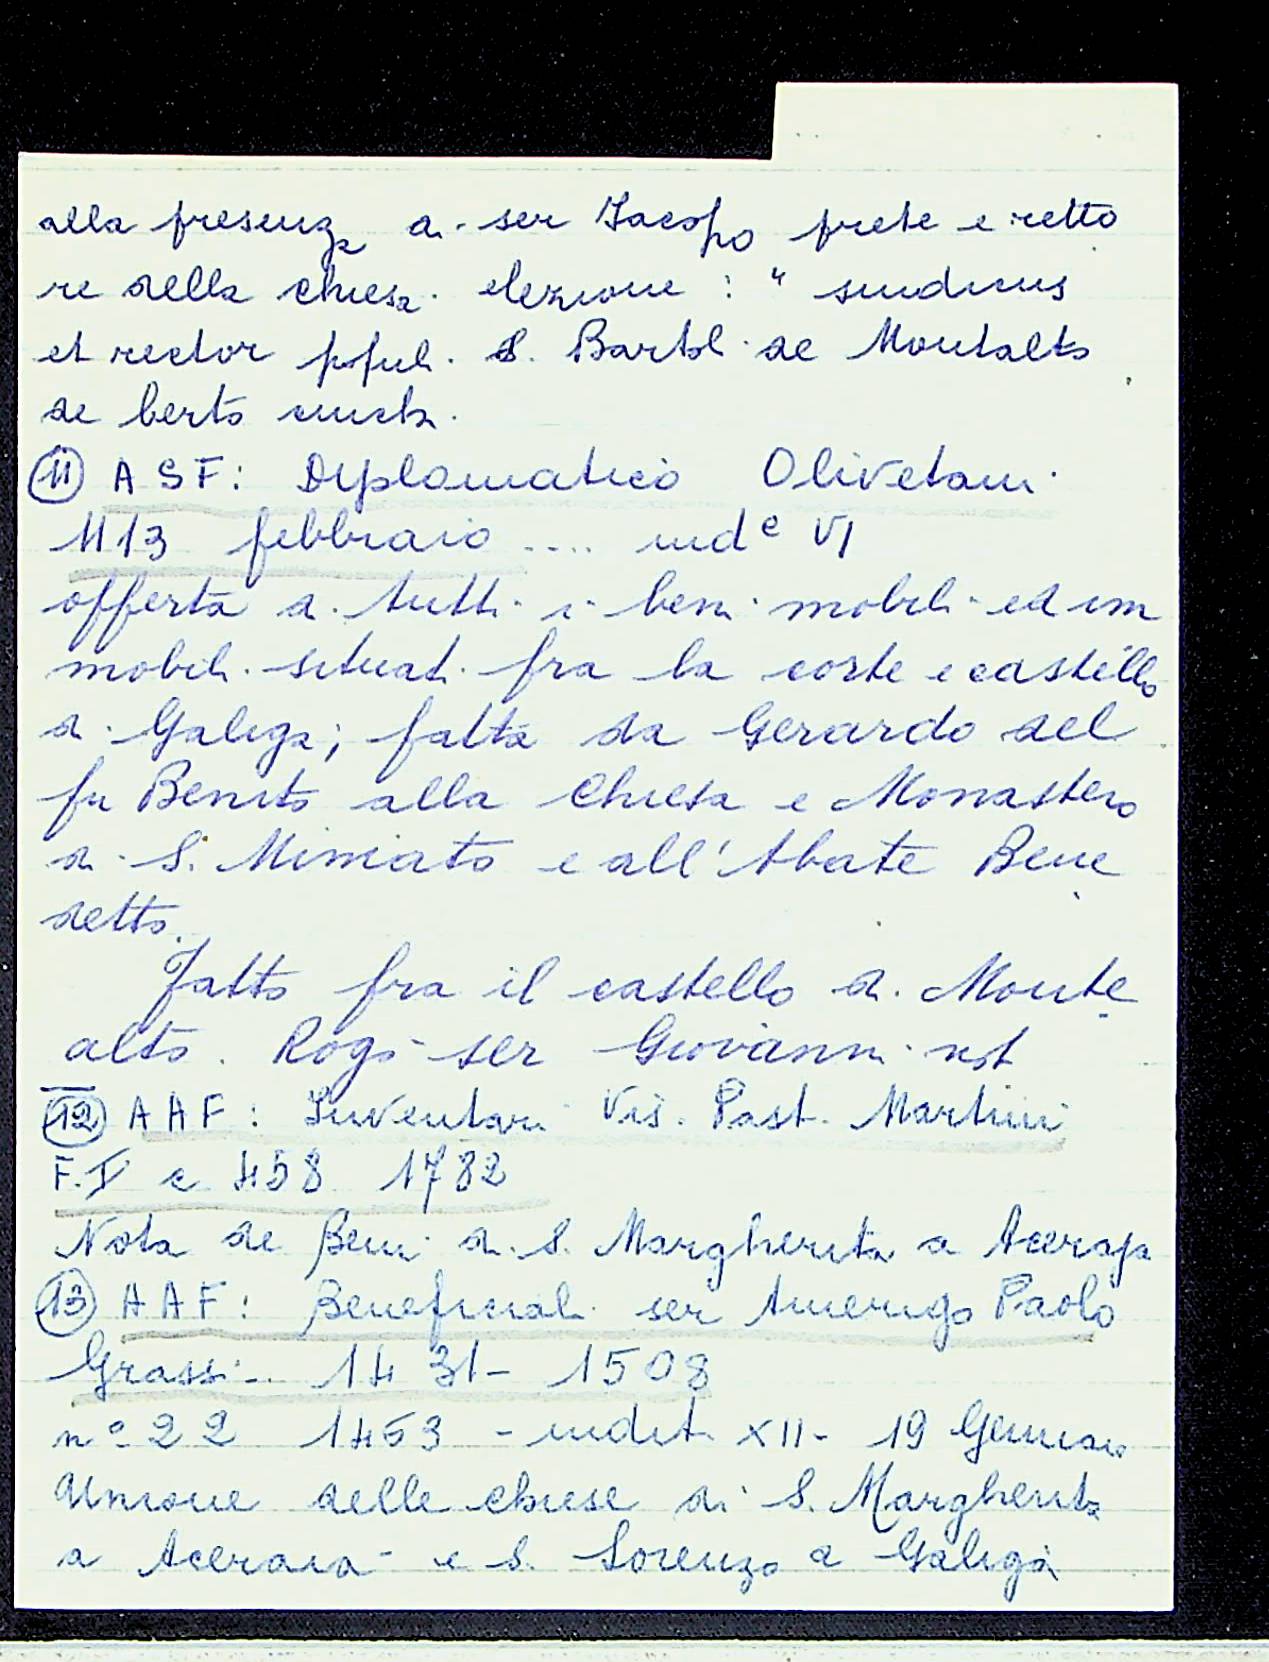 alla presenza di ser Jacopo prete e retto
re della chiesa. elezione : " sindicus
et rector popul. S. Bartol. de Montalto
de certo
(11) ASF: Diplomatico Olivetani
1113 febbraio .... indᵉ VI
offerta di tutti i beni mobili ed im
mobili situati fra la corte e castello
di Galiga; fatta da Gerardo del
fu Benito alla Chiesa e Monastero
di S. Miniato e all'Abate Bene
detto.
Fatto fra il castello di Monte
alto. Rogò ser Giovanni not
(12) AAF: Inventari Vis. Past. Martini
F. V c 458 1782
Nota de Beni di S. Margherita a Aceraja
(13) AAF: Beneficiali ser Amerigo Paolo
Grassi .. 1431 - 1508
nº 22 1453 - indit. XII - 19 Gennaio
Unione delle chiese di S. Margherita
a Aceraia e S. Lorenzo a Galiga